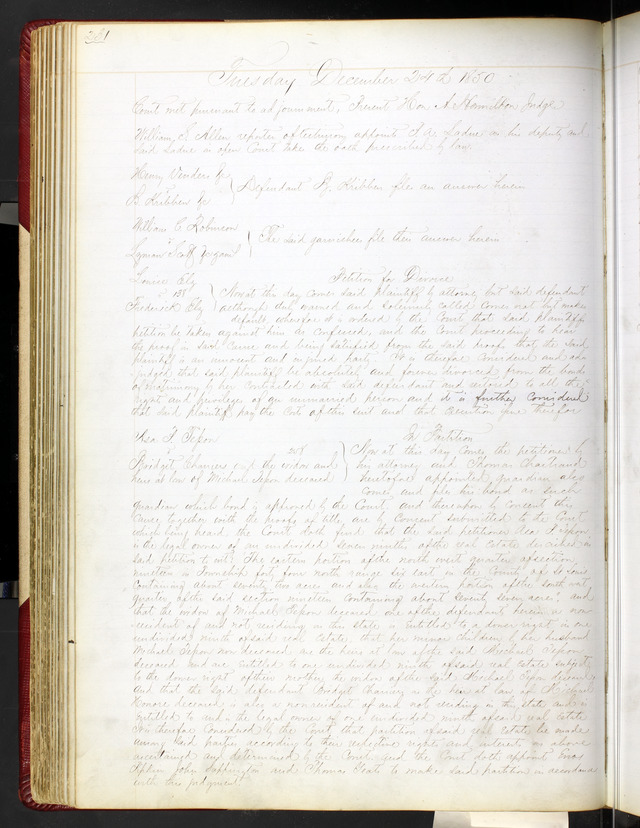 281
Tuesday December 24th 1850
Court met pursuant to adjournment, Present Hon A Hamilton Judge
William S. Allen reporter of decisions appoints as his deputy and
said Ladue in open Court takes the oath prescribed by law
Henry
B. Kribben &c } Defendant B. Kribben files an answer herein
William C Robinson
Lyman Scott } The said garnishee file their answer herein
Louisa Ely Petition for Divorce
138 } Now at this day come said plaintiff by attorney, but said defendant
Frederick Ely although duly warned and solemnly called comes not but makes
default wherefore it is ordered by the Court that said plaintiffs
petition be taken against him as confessed, and the Court proceeding to hear
the proof in said cause and being satisfied from the said proof that the said
plaintiff is an innocent and injured party, It is therefore considered and ad-
judged that said plaintiff be absolutely and forever divorced from the bonds
of matrimony by her contracted with said defendant and restored to all the
rights and privileges of an unmarried person and it is further considered
that said plaintiff pay the costs of this suit and that execution issue therefor
In Partition
208 } Now at this day comes the petitioner by
Bridget the widow and his attorney and Thomas
heirs at law of Michael deceased heretofore appointed guardian also
comes and files his bond as such
guardian which bond is approved by the Court, and thereupon by consent this
cause together with the proofs of title, are by consent submitted to the Court
which being heard, the Court doth find that the said petitioner
is the legal owner of an undivided seven ninths of the real estate described in
said petition to wit: The eastern portion of the north west quarter of section
nineteen in Township forty four North range six east in the County of St Louis
containing about seventy two acres and also the western portion of the south west
quarter of the said section nineteen containing about seventy seven acres and
that the widow of Michael deceased one of the defendants herein is non
resident of and not residing in this state is entitled to a dower right in one
undivided ninth of said real estate, that her minor children by her husband
Michael now deceased are the heirs at law of the said Michael
deceased and are entitled to one undivided ninth of said real estate subject
to the dower right of their mother the widow of the said Michael deceased
And that the said defendant Bridget is the heir at law of Michael
deceased is also a non resident of and not residing in this state and is
entitled to and is the legal owner of one undivided ninth of said real estate
It is therefore considered by the Court that partition of said real estate be made
among said parties according to their respective rights and interests as above
ascertained and determined by the Court and the Court doth appoint
John and Thomas to make said partition in accordance
with this judgment